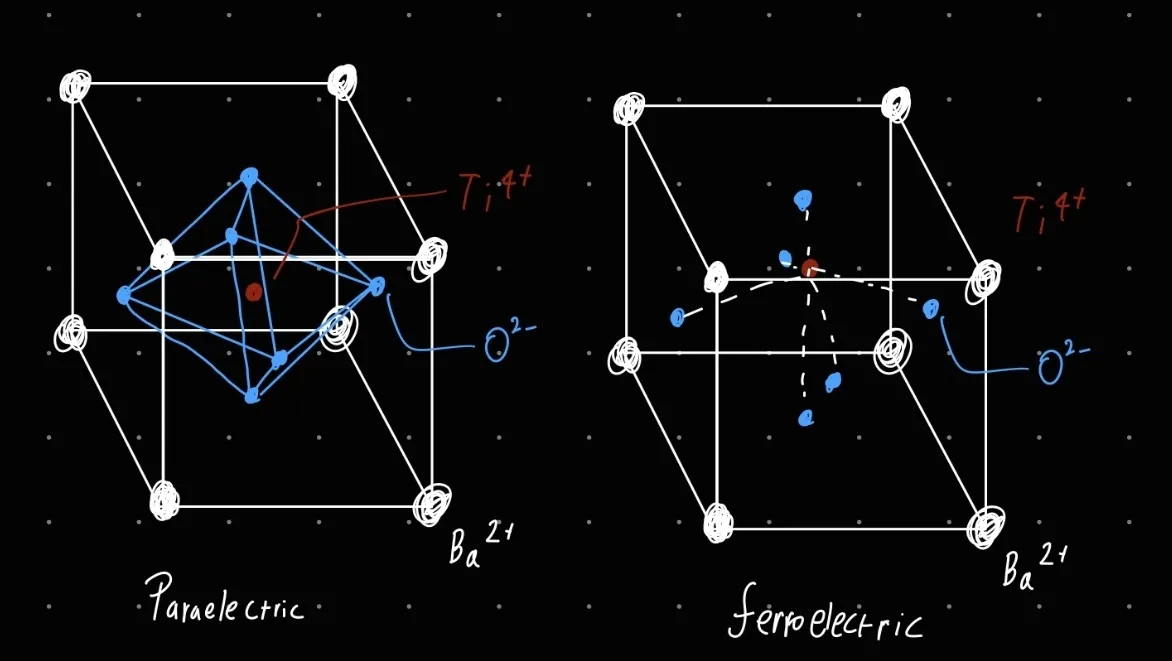 Ti⁴⁺
O²⁻
Ba²⁺
Paraelectric
Ti⁴⁺
O²⁻
Ba²⁺
ferroelectric